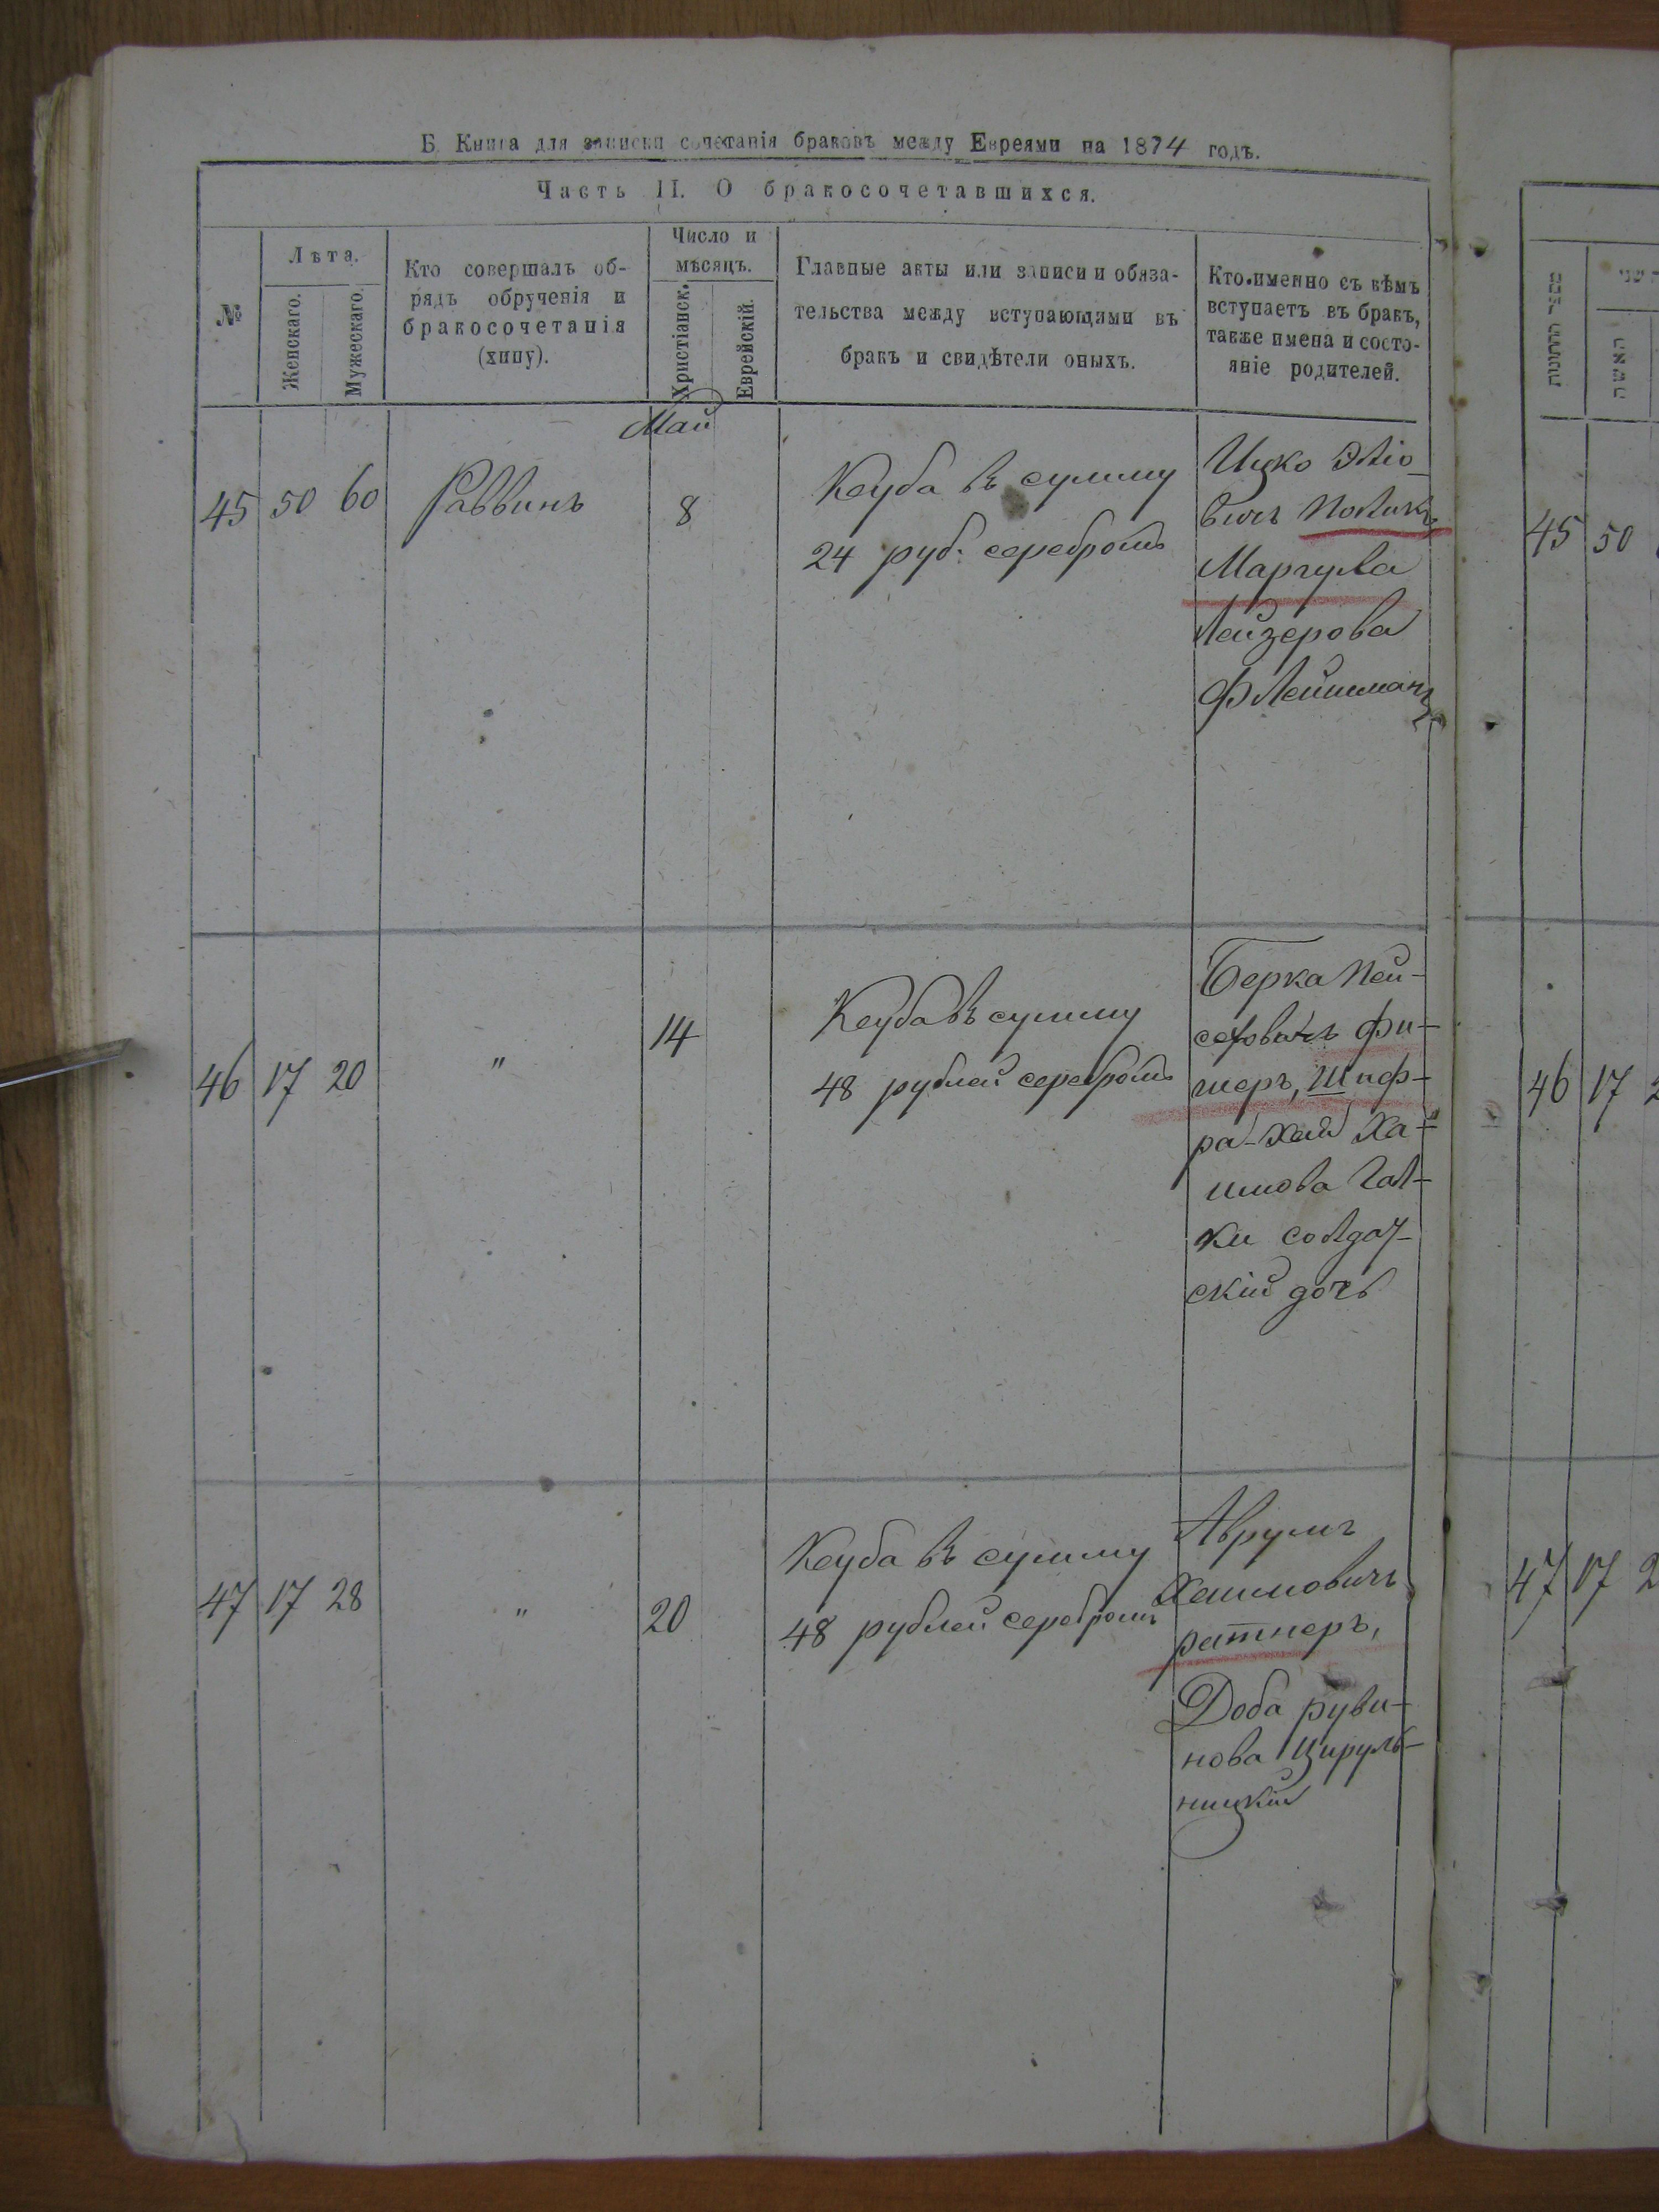 Б. Книга для записки сочетанія браковъ между Евреями на 1874 годъ.
Часть II. О бракосочетавшихся.
№
Лѣта.
Женскаго.
Мужескаго.
Кто совершалъ об-
рядъ обрученія и
бракосочетанія
(хипу).
Число и
мѣсяцъ.
Христіанск.
Еврейскій.
Главные акты или записи и обяза-
тельства между вступающими въ
бракъ и свидѣтели оныхъ.
Кто именно съ кѣмъ
вступаетъ въ бракъ,
также имена и состо-
яніе родителей.
Май
45 50 60 Раввинъ 8
Кеуба въ сумму
24 руб. серебромъ
Ицко Эліо-
вичъ Поликъ
Маргула
Лейзерова
Флейшманъ
46 17 20 " 14
Кеуба въ сумму
48 рублей серебромъ
Берка Пей-
сеховичъ Фи-
шеръ, Шиф-
ра-Хая Ха-
имова Гал-
ки солдат-
скій дочь
47 17 28 " 20
Кеуба въ сумму
48 рублей серебромъ
Аврумъ
Хаимовичъ
ратнеръ,
Доба руви-
нова Цируль-
ницкій
מספר החתונות
האשה
45 50
46 17 2
47 17 2